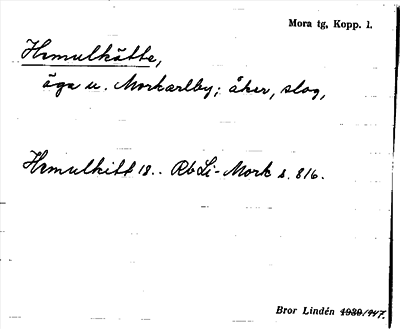 Mora tg, Kopp. 1.
Hemulkätte,
äga u. Morkarlby; åker, slog,
Hemulkitt 18.. Rb Li-Mork s. 816.
Bror Lindén 1939/447.